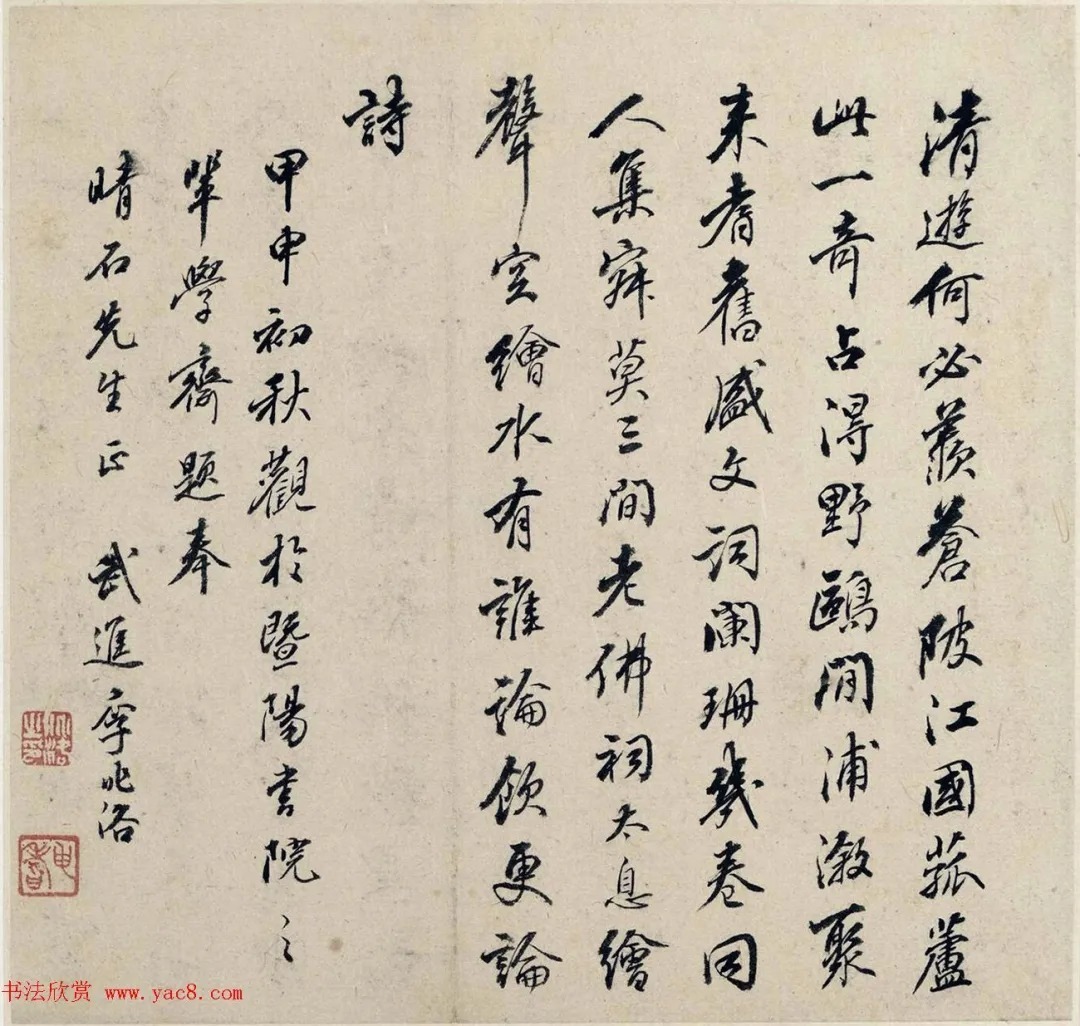 清遊何必羨蒼陂江國菰蘆
此一奇占得野鷗間浦溆聚
来耆舊盛文詞闌珊幾卷同
人集寂莫三間老佛祠太息繪
聲空繪水有誰論飲更論
詩
甲申初秋觀於暨陽書院之
輩學齋題奉
晴石先生正 武進李兆洛
书法欣赏 www.yac8.com